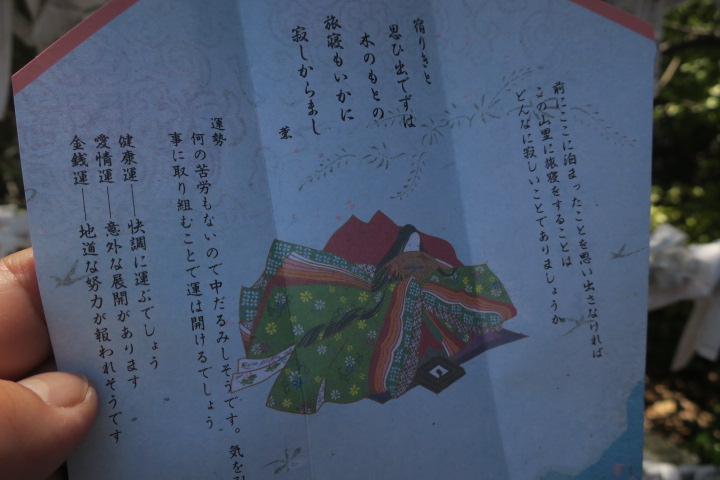 宿りきと
思ひ出でずは
木のもとの
旅寝もいかに
寂しからまし
薫
前にここに泊まったことを思い出さなければ
この山里に旅寝をすることは
どんなに寂しいことでありましょうか
運勢
何の苦労もないので中だるみしそうです。気を引
事に取り組むことで運は開けるでしょう
健康運――快調に運ぶでしょう
愛情運――意外な展開があります
金銭運――地道な努力が報われそうです